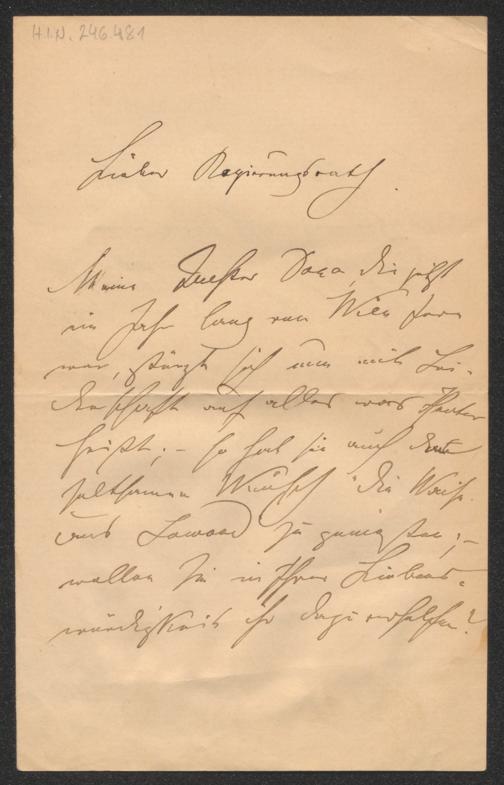 H.I.N. 246.481
Lieber Regierungsrath.
Meine Tochter Dora, die jetzt
ein Jahr lang von Wien fern
war, stürzt sich nun mit Lei-
denschaft auf alles was Theater
heißt; – so hat sie auch den
seltsamen Wunsch "die Waise
aus Lowood" zu genießen; –
wollen Sie in Ihrer Liebens-
würdigkeit ihr dazu verhelfen?